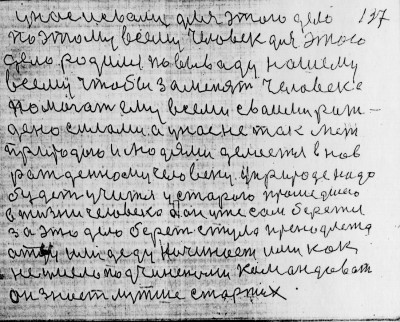 у нас и сваими для этого дело 137
поэтому всему человек для этого
дело родился по вываду нашему
всему чтобы заменят человека
помогат ему всеми сваими рож-
дено силами а у нас не так мет
природаю и людями делается в нов
рожденному человеку. У природе надо
будет учится у старого прошедшего
в жизни человека он уже сам берется
за это дело берет стула преподавателя
отцу или деду начинает или как
не умело подчинеными командоват
он знает лутше старших